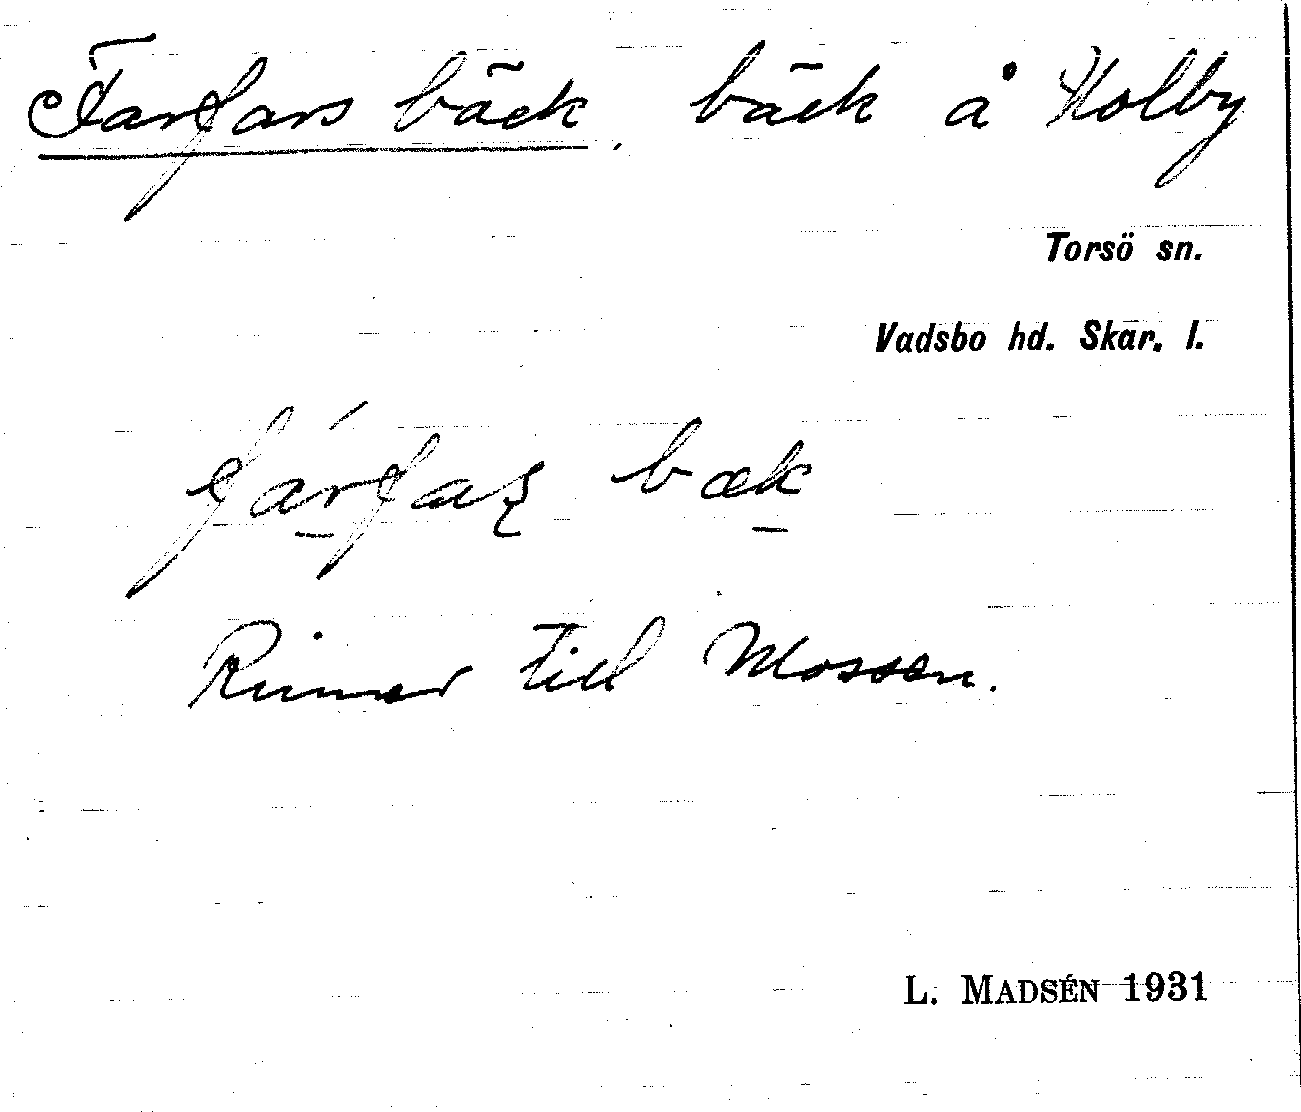 Farfars bäck, bäck å Holby
Torsö sn.
Vadsbo hd. Skar. l.
fárfaʂ bæk
Rinner till Mossen.
L. MADSÉN 1931